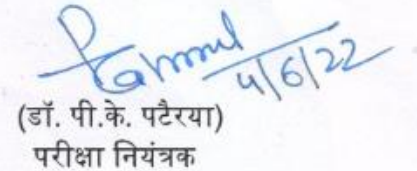 4/6/22
(डॉ. पी.के. पटैरया)
परीक्षा नियंत्रक